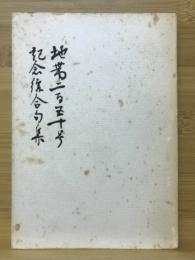 地帯二百五十号
記念綜合句集